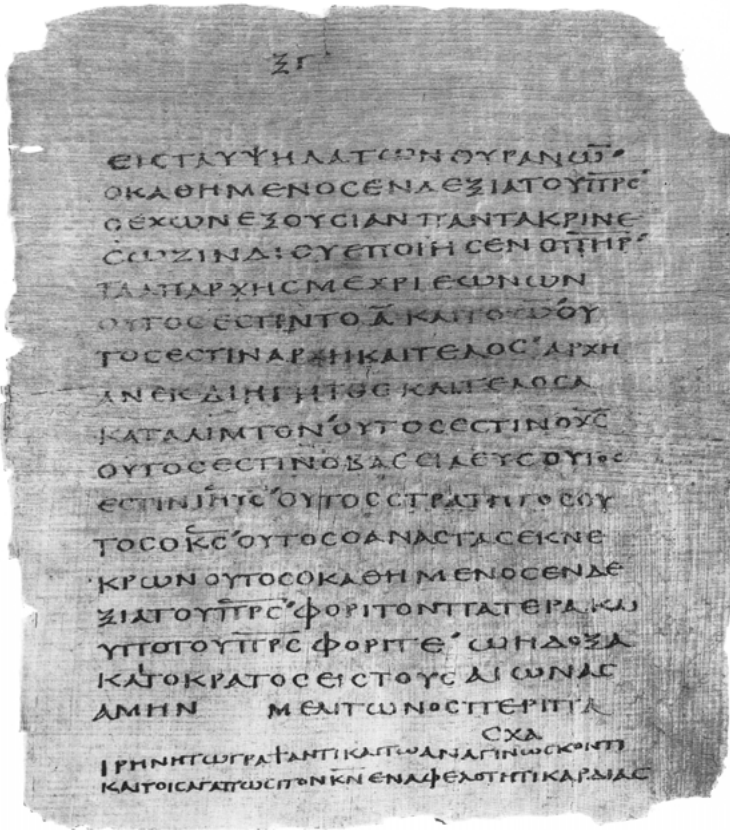 ΞΓ
ΕΙCΤΑΥΨΗΛΑΤΩΝΟΥΡΑΝΩ̅
ΟΚΑΘΗΜΕΝΟCΕΝΔΕΞΙΑΤΟΥΠ̅Ρ̅C̅
ΟΕΧΩΝΕΞΟΥCΙΑΝΠΑΝΤΑΚΡΙΝΕ
CΩΖΙΝΔΙΟΥΕΠΟΙΗCΕΝΟΠ̅Η̅Ρ̅
ΤΑΑΠΑΡΧΗCΜΕΧΡΙΕΩΝΩΝ
ΟΥΤΟCΕCΤΙΝΤΟΑ̅ΚΑΙΤΟΩ̅ΟΥ
ΤΟCΕCΤΙΝΑΡΧΗΚΑΙΤΕΛΟC'ΑΡΧΗ
ΑΝΕΚΔΙΗΓΗΤΟCΚΑΙΤΕΛΟCΑ
ΚΑΤΑΛΙΜΤΟΝ'ΟΥΤΟCΕCΤΙΝΟΧ̅C̅
ΟΥΤΟCΕCΤΙΝΟΒΑCΕΙΛΕΥCΟΥΤΟC
ΕCΤΙΝΙ̅Η̅C̅'ΟΥΤΟCCΤΡΑΤΗΓΟCΟΥ
ΤΟCΟΚ̅C̅'ΟΥΤΟCΟΑΝΑCΤΑCΕΚΝΕ
ΚΡΩΝΟΥΤΟCΟΚΑΘΗΜΕΝΟCΕΝΔΕ
ΞΙΑΤΟΥΠ̅Ρ̅C̅'ΦΟΡΙΤΟΝΠΑΤΕΡΑΚΑΙ
ΥΠΟΤΟΥΠ̅Ρ̅C̅ΦΟΡΙΤΕ'ΩΗΔΟΞΑ
ΚΑΤΟΚΡΑΤΟCΕΙCΤΟΥCΑΙΩΝΑC
ΑΜΗΝ ΜΕΛΙΤΩΝΟCΠΕΡΙΠΑ
CΧΑ
ΙΡΗΝΗΤΩΓΡΑΨΑΝΤΙΚΑΙΤΩΑΝΑΓΙΝΩCΚΟΝΤΙ
ΚΑΙΤΟΙCΑΓΑΠΩCΙΤΟΝΚ̅Ν̅ΕΝΑΦΕΛΟΤΗΤΙΚΑΡΔΙΑC